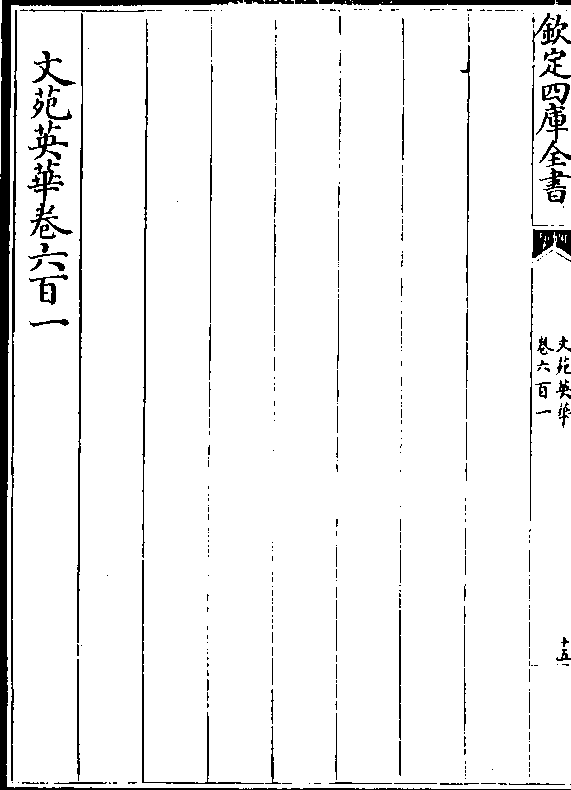 欽定四庫全書
文苑英華
卷六百一
十五
文苑英華卷六百一